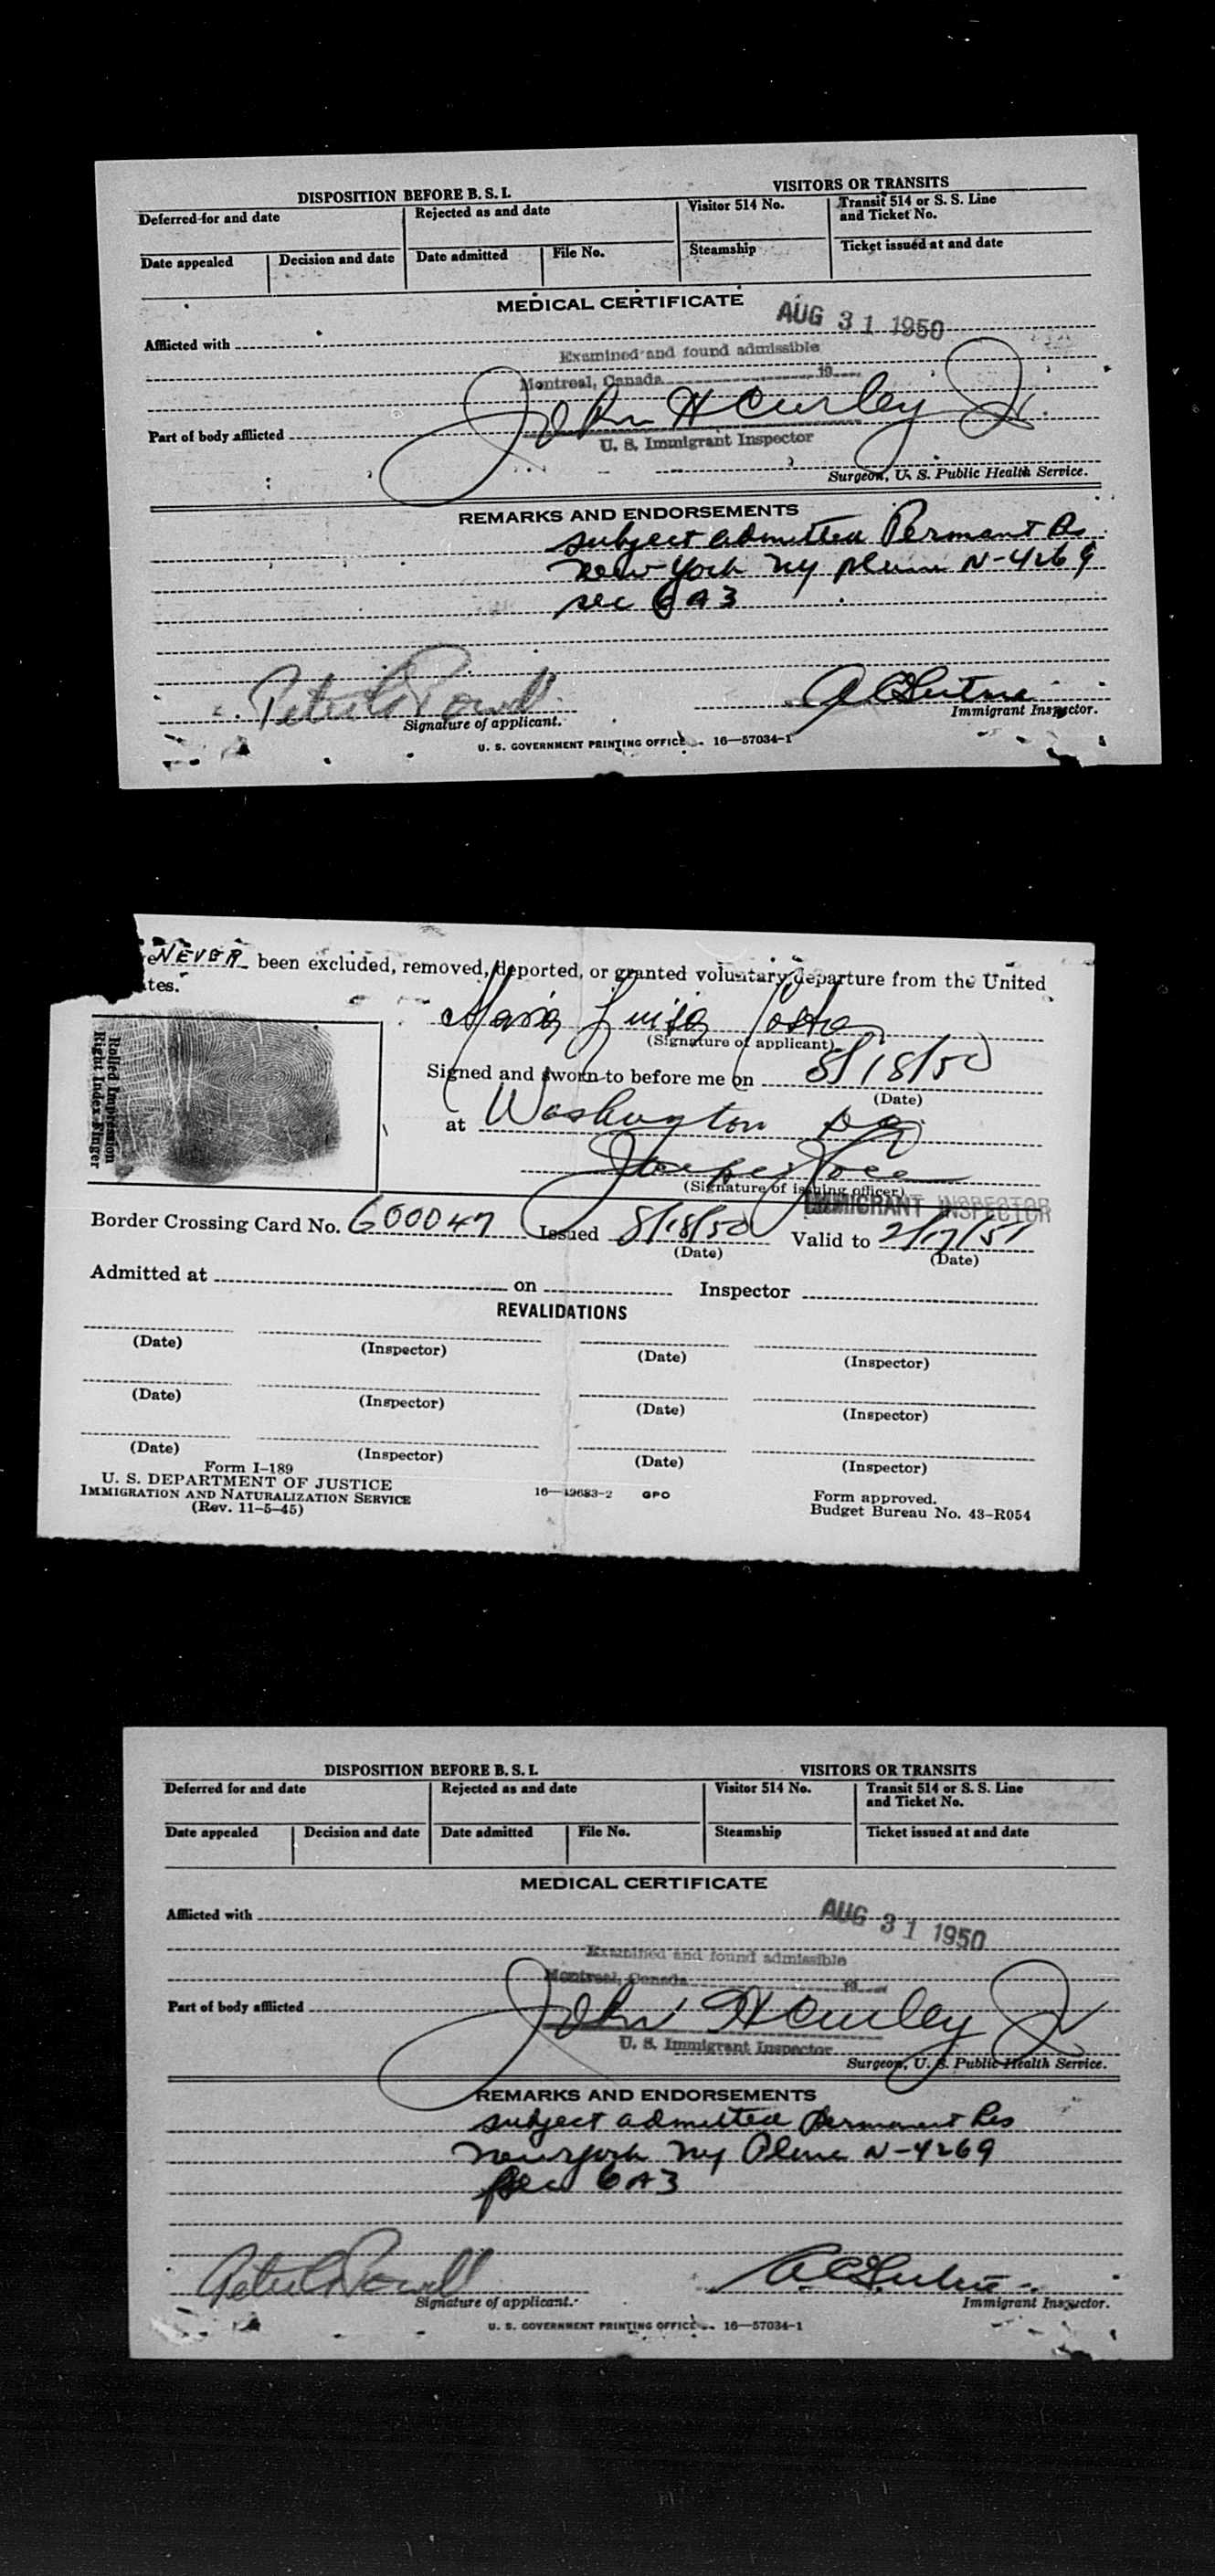 DISPOSITION BEFORE B. S. I. VISITORS OR TRANSITS
Deferred for and date Rejected as and date Visitor 514 No. Transit 514 or S. S. Line and Ticket No.
Date appealed Decision and date Date admitted File No. Steamship Ticket issued at and date
MEDICAL CERTIFICATE
AUG 31 1950
Afflicted with
Examined and found admissible
Montreal, Canada 19
John H Curley Jr.
Part of body afflicted
U. S. Immigrant Inspector
Surgeon, U. S. Public Health Service.
REMARKS AND ENDORSEMENTS
subject admitted Permant Res
New York NY plane N-4269
sec 6 A3
Signature of applicant.
Immigrant Inspector.
U. S. GOVERNMENT PRINTING OFFICE 16—57034-1
NEVER been excluded, removed, deported, or granted voluntary departure from the United
ates.
Maria Luisa
(Signature of applicant)
Rolled Impression
Right Index Finger
Signed and sworn to before me on 8/18/50
(Date)
at Washington DC
(Signature of issuing officer)
IMMIGRANT INSPECTOR
Border Crossing Card No. 600047 Issued 8/18/50 Valid to 2/17/51
(Date) (Date)
Admitted at on Inspector
REVALIDATIONS
(Date) (Inspector) (Date) (Inspector)
(Date) (Inspector) (Date) (Inspector)
(Date) (Inspector) (Date) (Inspector)
Form I-189
U. S. DEPARTMENT OF JUSTICE
IMMIGRATION AND NATURALIZATION SERVICE
(Rev. 11-5-45)
16—49683-2 GPO
Form approved.
Budget Bureau No. 43-R054
DISPOSITION BEFORE B. S. I. VISITORS OR TRANSITS
Deferred for and date Rejected as and date Visitor 514 No. Transit 514 or S. S. Line and Ticket No.
Date appealed Decision and date Date admitted File No. Steamship Ticket issued at and date
MEDICAL CERTIFICATE
Afflicted with
AUG 31 1950
Examined and found admissible
Montreal, Canada 19
John H Curley Jr
Part of body afflicted
U. S. Immigrant Inspector
Surgeon, U. S. Public Health Service.
REMARKS AND ENDORSEMENTS
subject admitted Permanent Res
New York NY Plane N-4269
Sec 6 A3
Signature of applicant.
Immigrant Inspector.
U. S. GOVERNMENT PRINTING OFFICE 16—57034-1